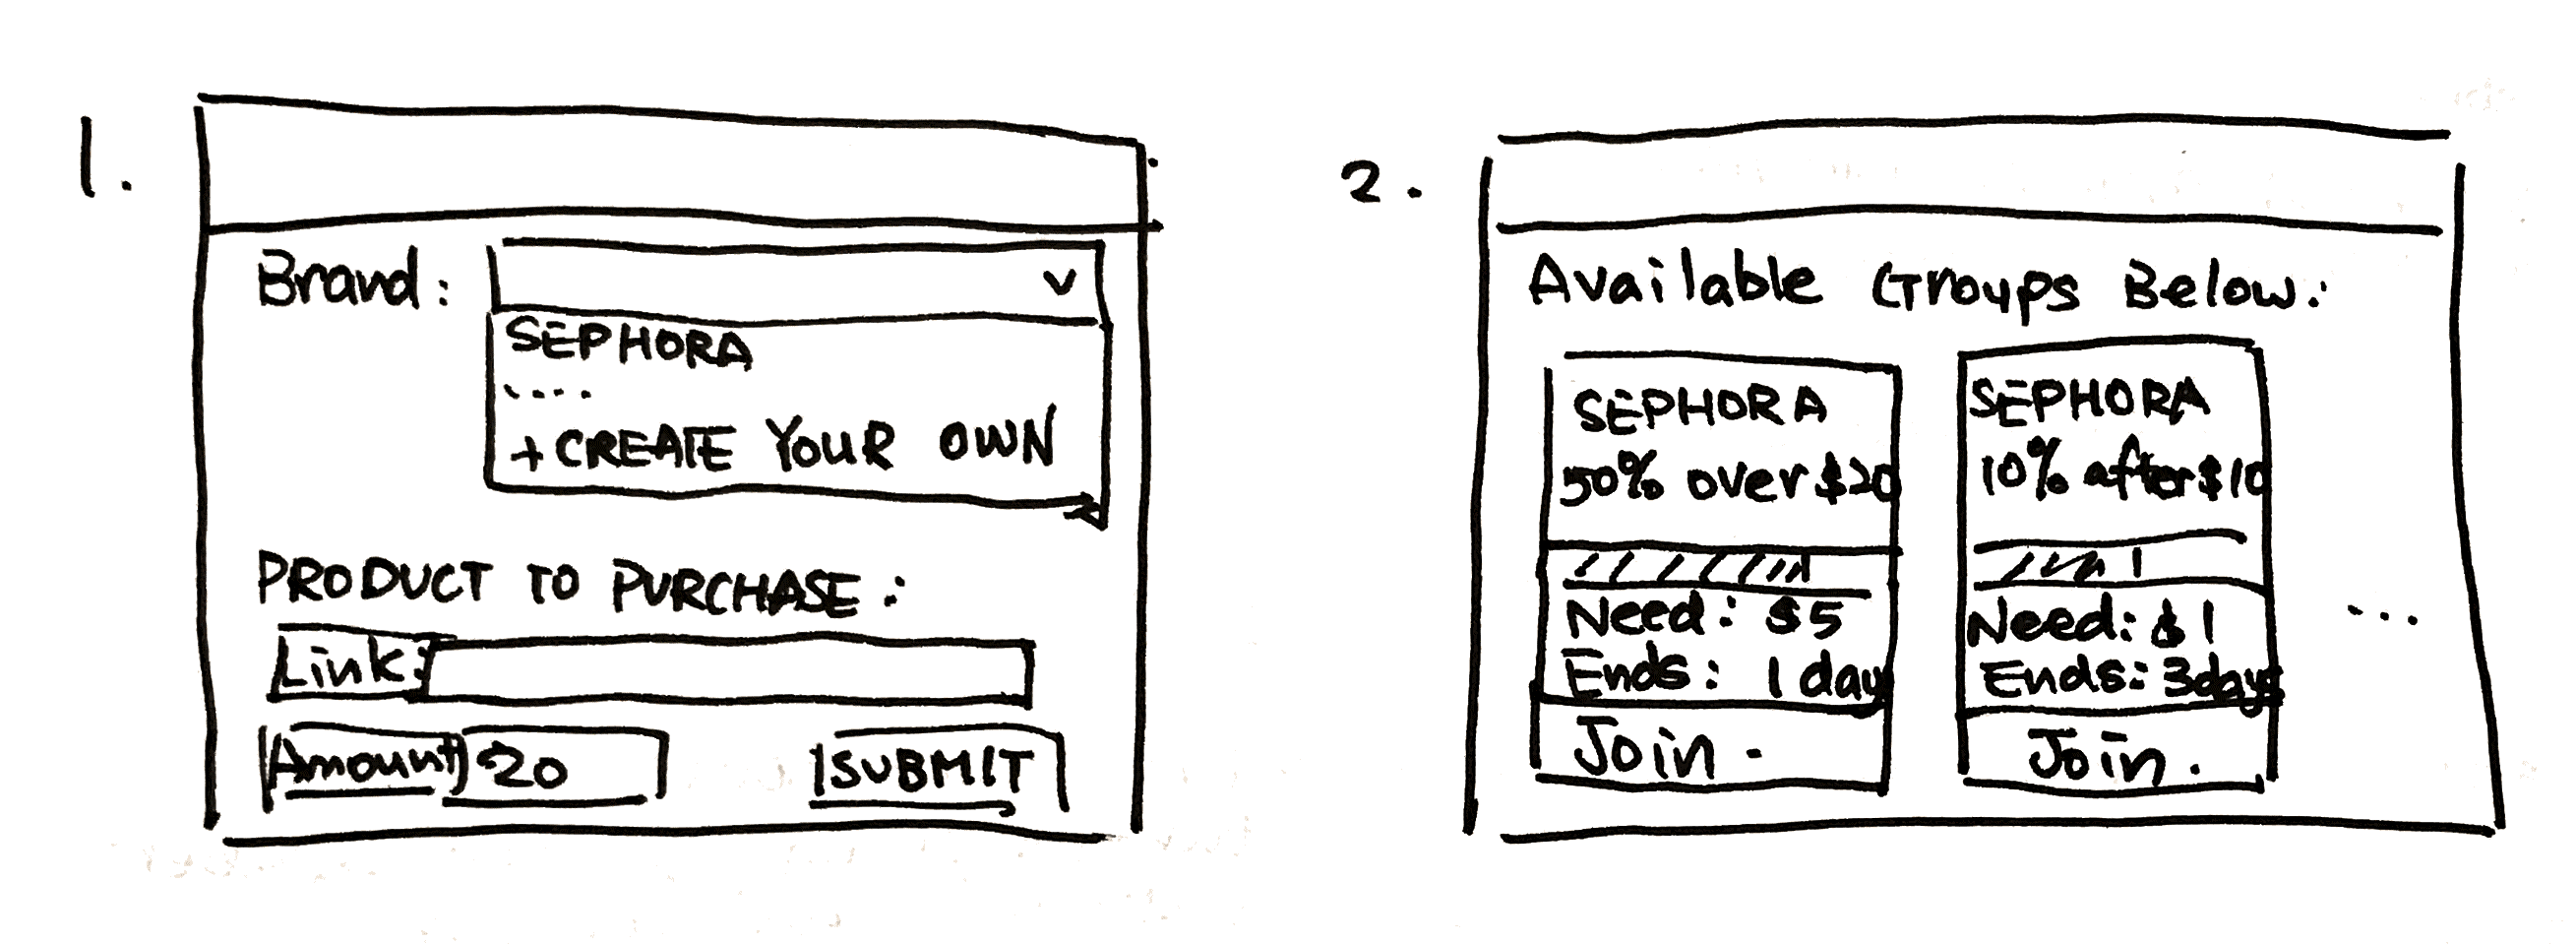 1.
Brand:
v
SEPHORA
....
+CREATE YOUR OWN
PRODUCT TO PURCHASE:
Link:
Amount 20
SUBMIT
2.
Available Groups Below:
SEPHORA
50% over $20
Need: $5
Ends: 1 day
Join.
SEPHORA
10% after $10
Need: $1
Ends: 3days
Join.
...